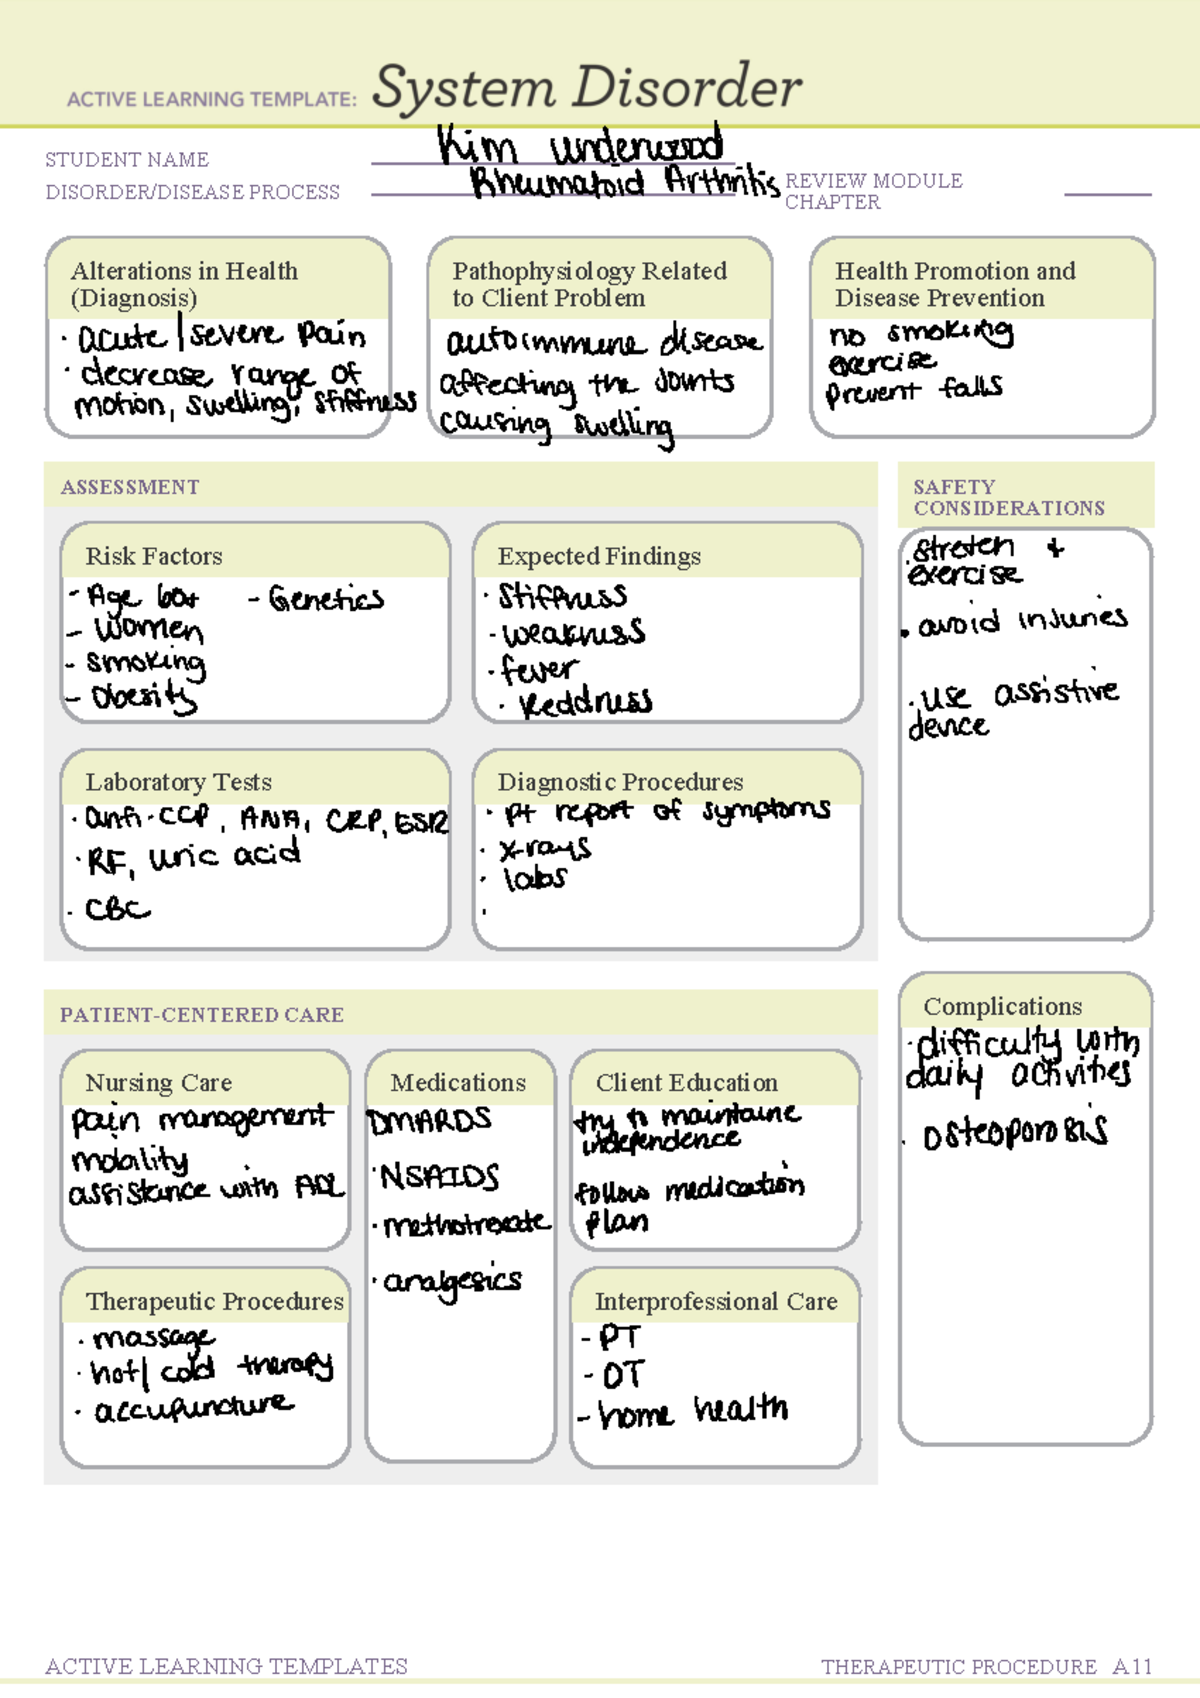 ACTIVE LEARNING TEMPLATE: System Disorder
STUDENT NAME Kim Underwood
DISORDER/DISEASE PROCESS Rheumatoid Arthritis REVIEW MODULE
CHAPTER
Alterations in Health
(Diagnosis)
· acute/severe pain
· decrease range of
motion, swelling, stiffness
Pathophysiology Related
to Client Problem
autoimmune disease
affecting the joints
causing swelling
Health Promotion and
Disease Prevention
no smoking
exercise
prevent falls
ASSESSMENT
Risk Factors
- Age 60+ - Genetics
- Women
- smoking
- Obesity
Expected Findings
· Stiffness
· weakness
· fever
· Reddness
Laboratory Tests
· anti-CCP, ANA, CRP, ESR
· RF, uric acid
· CBC
Diagnostic Procedures
· Pt report of symptoms
· x-rays
· labs
·
SAFETY
CONSIDERATIONS
· stretch +
exercise
· avoid injuries
· use assistive
device
PATIENT-CENTERED CARE
Nursing Care
pain management
mobility
assistance with ADL
Medications
DMARDS
· NSAIDS
· methotrexate
· analgesics
Client Education
try to maintaine
independence
follow medication
plan
Therapeutic Procedures
· massage
· hot/cold therapy
· accupuncture
Interprofessional Care
- PT
- OT
- home health
Complications
· difficulty with
daily activities
· osteoporosis
ACTIVE LEARNING TEMPLATES
THERAPEUTIC PROCEDURE A11